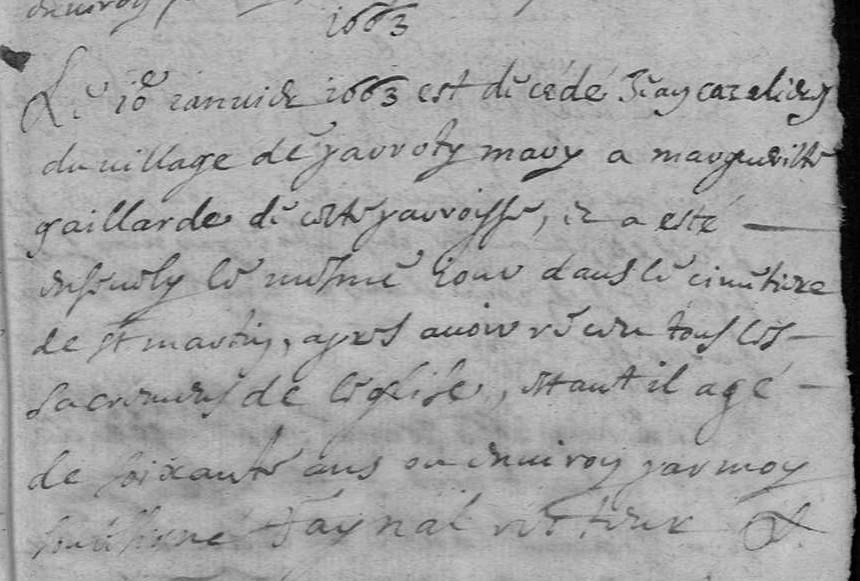 1663
Le 10e ianuier 1663 est decedé Jean cazalieres
du village de parroty mary a margueritte
gaillarde de cette parroisse, il a esté
ensevely le mesme iour dans le cimetiere
de st martin, apres avoir receu tous les
sacremens de l'eglise, estant il agé
de soixante ans ou enuiron par moy
soubsigné Faynal victeur